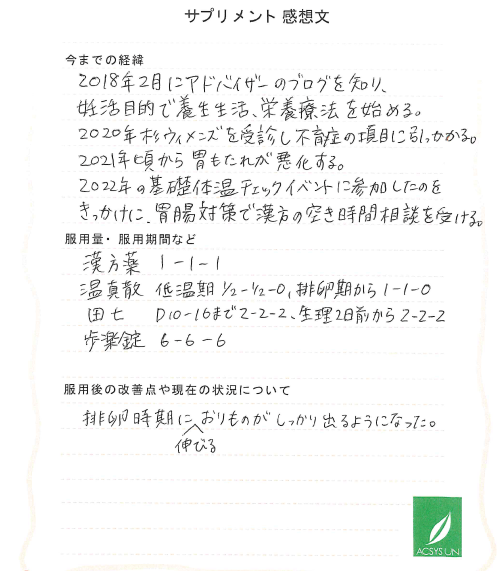 サプリメント 感想文
今までの経緯
2018年2月にアドバイザーのブログを知り、
妊活目的で養生生活、栄養療法を始める。
2020年杉ウィメンズを受診し不育症の項目に引っかかる。
2021年頃から胃もたれが悪化する。
2022年の基礎体温チェックイベントに参加したのを
きっかけに、胃腸対策で漢方の空き時間相談を受ける。
服用量・服用期間など
漢方薬 1-1-1
温真散 低温期 1/2-1/2-0、排卵期から1-1-0
田七 D10-16まで2-2-2、生理2日前から2-2-2
歩楽錠 6-6-6
服用後の改善点や現在の状況について
排卵時期に おりものがしっかり出るようになった。
伸びる
ACSYS UN